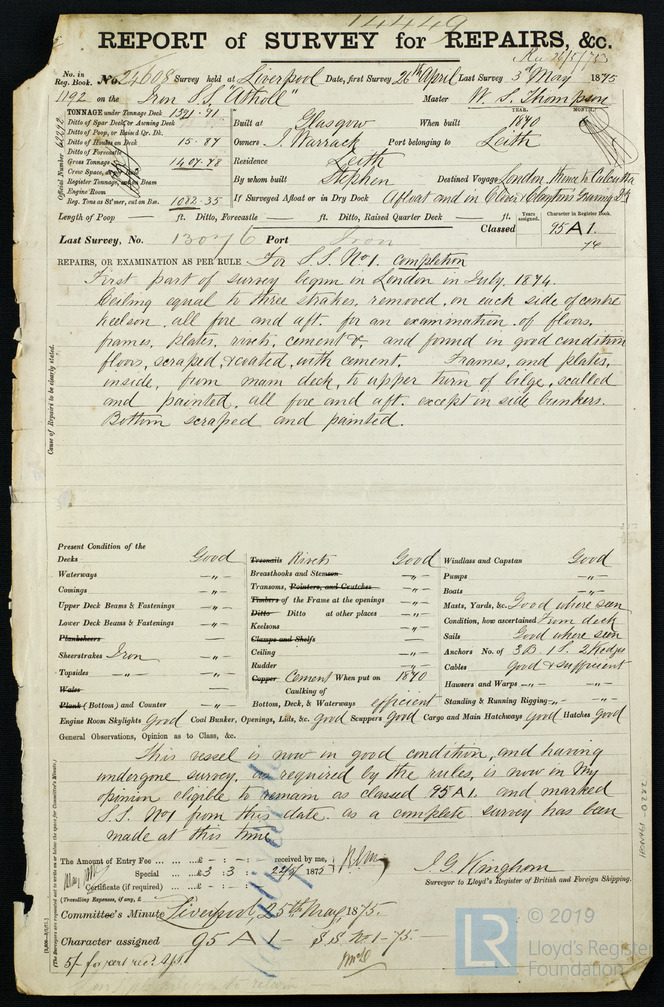 14449
REPORT of SURVEY for REPAIRS, &c.
Rec 26/5/75
No. in Reg. Book. No. 24608 Survey held at Liverpool Date, first Survey 26th April Last Survey 3rd May 1875
1192 on the Iron S.S. "Atholl" Master W. S. Thompson
TONNAGE under Tonnage Deck 1391.91
Ditto of Spar Deck or Awning Deck
Ditto of Poop, or Raised Qr. Dk.
Ditto of Houses on Deck 15.87
Ditto of Forecastle
Gross Tonnage 1407.78
Crew Space,
Register Tonnage, cut on Beam
Engine Room
Reg. Tons as St'mer, cut on Bm. 1082.35
Official Number
Built at Glasgow When built YEAR. 1870 MONTH.
Owners J. Warrack Port belonging to Leith
Residence Leith
By whom built Stephen Destined Voyage London thence to Calcutta
If Surveyed Afloat or in Dry Dock Afloat and in Clover Clayton's Graving Dk
Length of Poop — ft. Ditto, Forecastle — ft. Ditto, Raised Quarter Deck — ft.
Years assigned. Character in Register Book.
Classed 95 A 1.
74
Last Survey, No. 13076 Port Lon
REPAIRS, OR EXAMINATION AS PER RULE For S.S. No 1. Completion
First part of survey begun in London in July, 1874.
Ceiling equal to three strakes, removed, on each side of centre
keelson, all fore and aft. for an examination of floors,
frames, plates, rivets, cement &c, and found in good condition
floors, scraped, & coated, with cement. Frames, and plates,
inside, from main deck, to upper turn of bilge, sculled
and painted, all fore and aft. except in side bunkers.
Bottom scraped and painted.
Cause of Repairs to be clearly stated.
Present Condition of the
Decks Good
Waterways —"—
Comings —"—
Upper Deck Beams & Fastenings —"—
Lower Deck Beams & Fastenings —"—
Planksheers —
Sheerstrakes Iron —"—
Topsides —"—
Wales —
Plank (Bottom) and Counter —"—
Treenails Rivets Good
Breasthooks and Stemson —"—
Transoms, Pointers, and Crutches —"—
Timbers of the Frame at the openings —"—
Ditto Ditto at other places —"—
Keelsons —"—
Clamps and Shelfs —
Ceiling —"—
Rudder —"—
Copper Cement When put on 1870
Caulking of
Bottom, Deck, & Waterways efficient
Windlass and Capstan Good
Pumps —"—
Boats —"—
Masts, Yards, &c. Good where seen
Condition, how ascertained From deck
Sails Good where seen
Anchors No. of 3 B. 1 S. 2 Kedges
Cables Good & sufficient
Hawsers and Warps —"—
Standing & Running Rigging —"—
Engine Room Skylights good Coal Bunker, Openings, Lids, &c. good Scuppers good Cargo and Main Hatchways good Hatches good
General Observations, Opinion as to Class, &c.
This vessel is now in good condition, and having
undergone survey, as required by the rules, is now in my
opinion eligible to remain as classed 95 A 1. and marked
S.S. No 1 from this date. as a complete survey has been
made at this time
The Amount of Entry Fee ... ... £ — : — : — received by me,
Special ... £3 : 3 : 1875
Certificate (if required) ... £ — : — : —
(Travelling Expenses, if any, £
J. G. Kinghorn
Surveyor to Lloyd's Register of British and Foreign Shipping.
Committee's Minute Liverpool, 25th May, 1875.
Character assigned 95 A 1 - S.S. No 1-75.
LR
© 2019
Lloyd's Register
Foundation